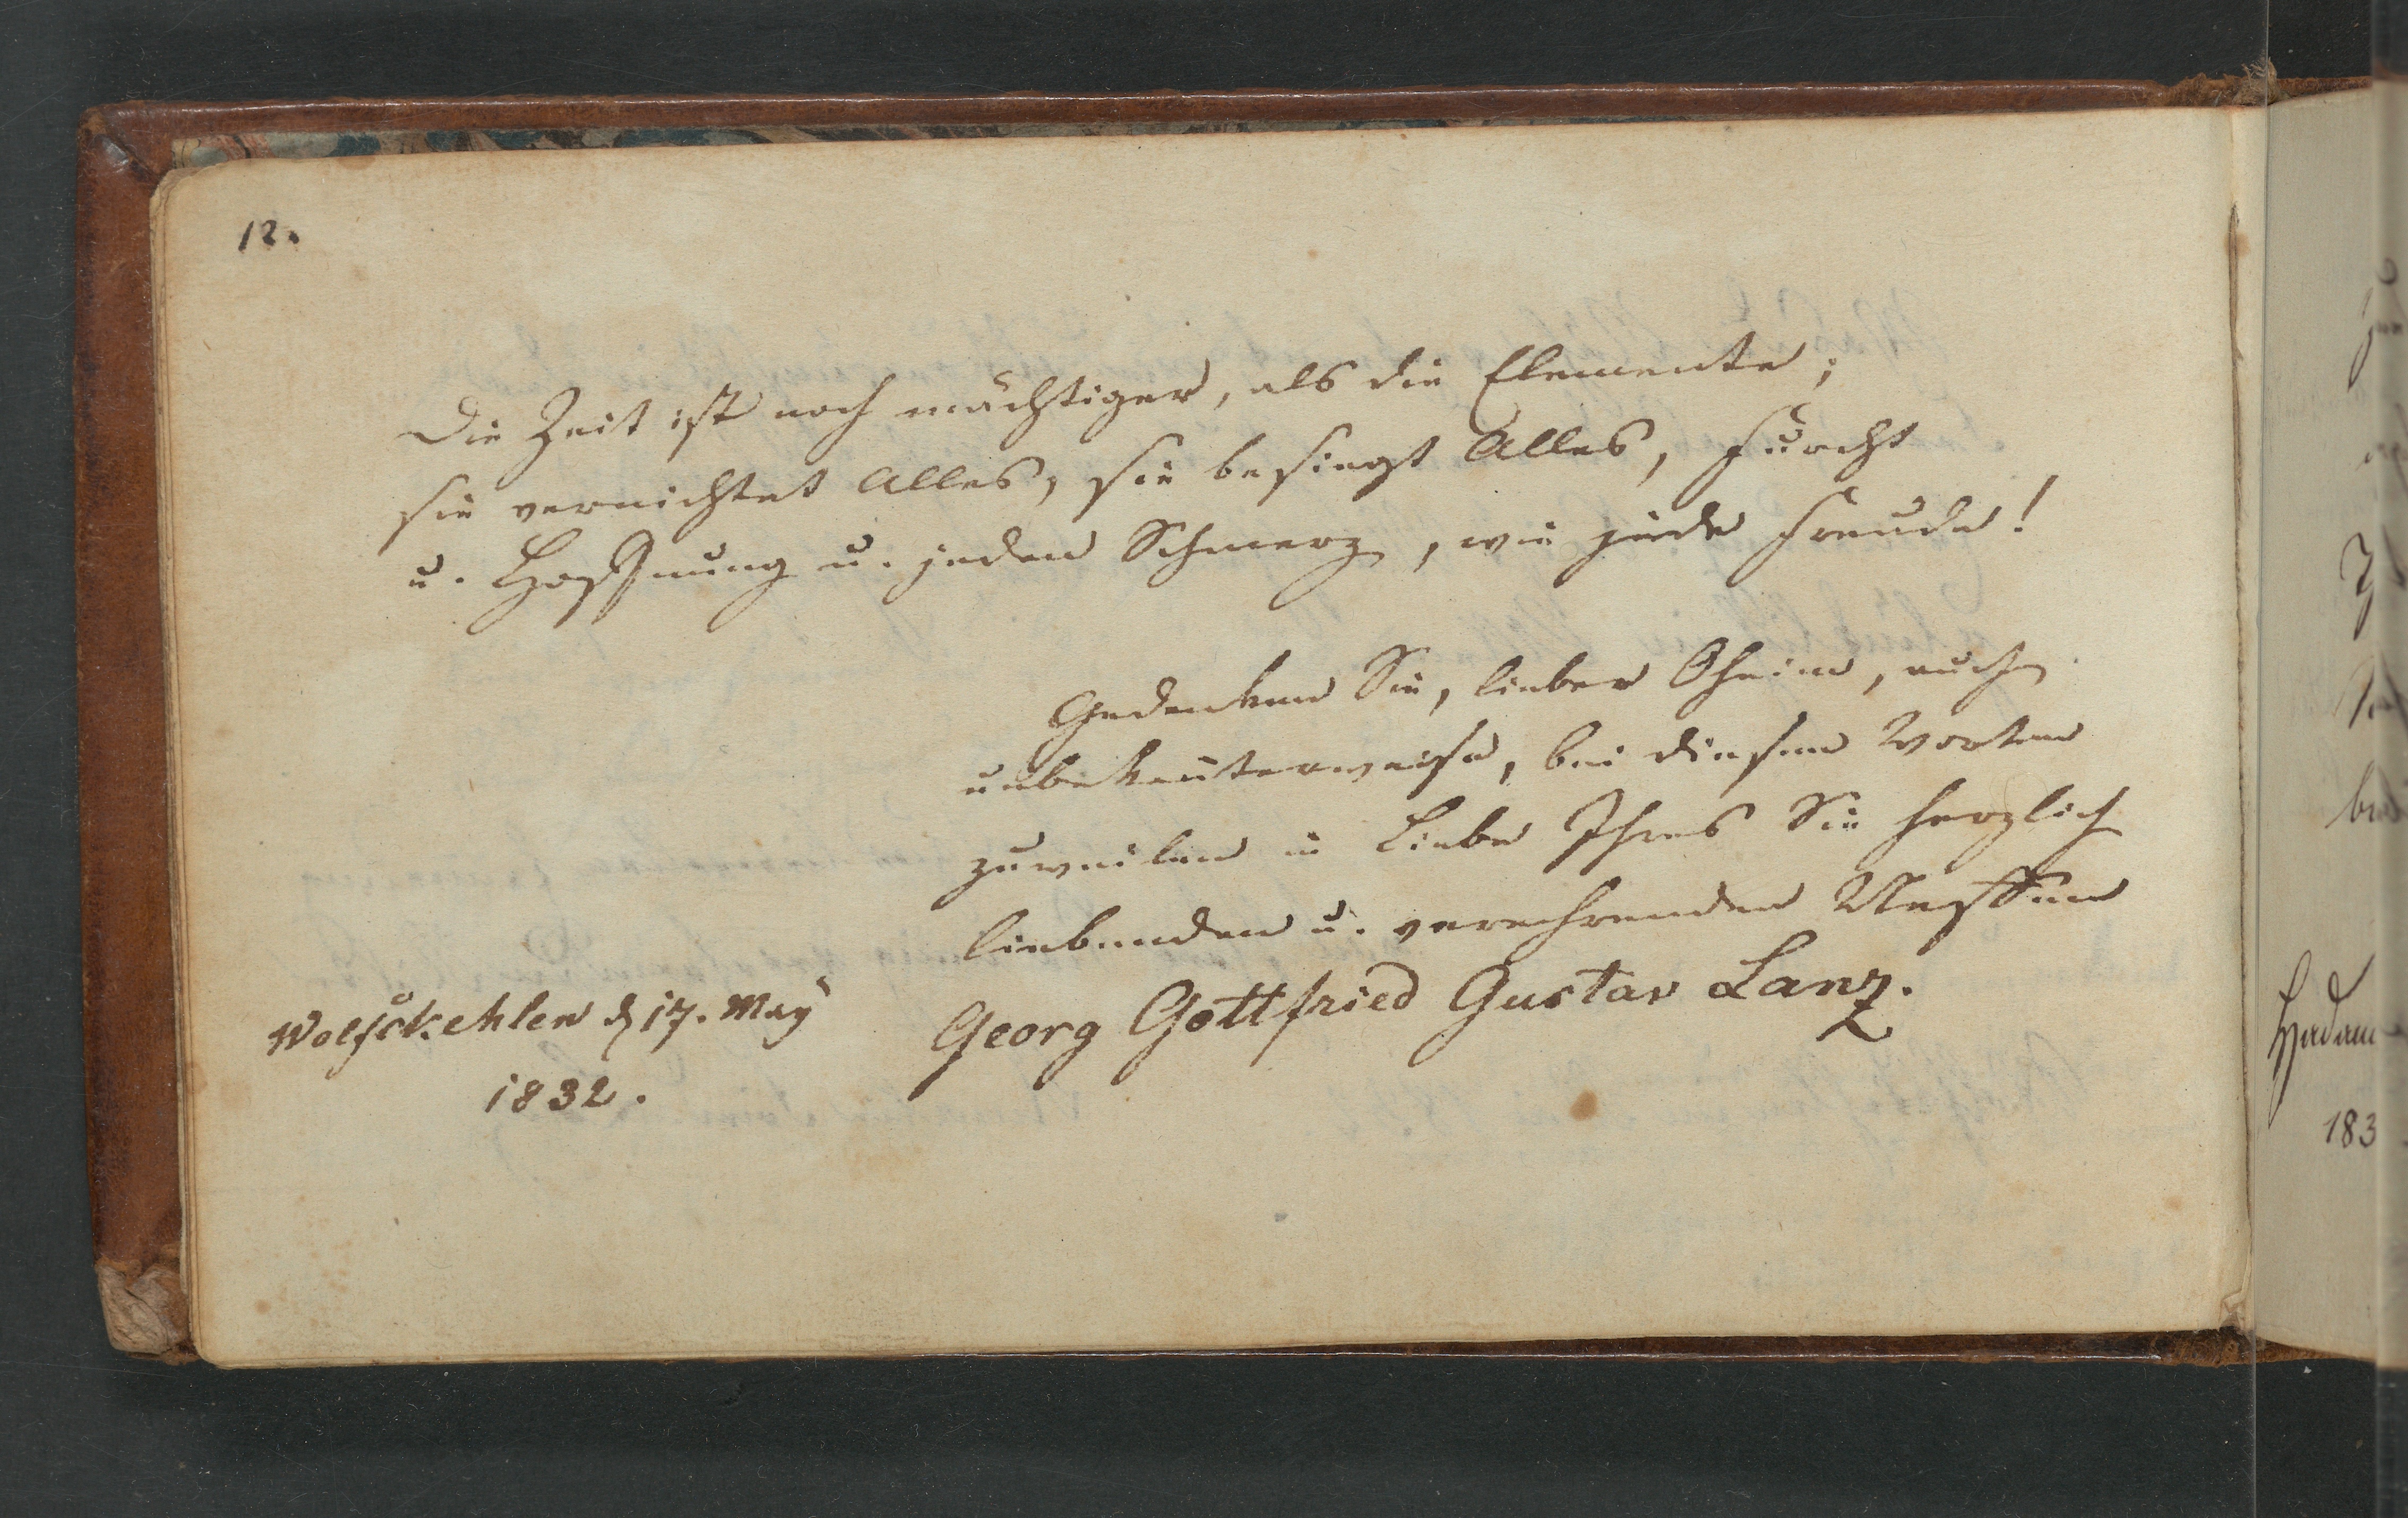 12.
Die Zeit ist noch mächtiger, als die Elemente;
sie vernichtet Alles, sie besiegt Alles, Furcht
u. Hoffnung u. jeden Schmerz, wie jede Freude!
Gedenken Sie, lieber Oheim, auch
unbekanterweise, bei diesen Worten
zuweilen in Liebe Ihres Sie herzlich
liebenden u. verehrenden Neffen
Georg Gottfried Gustav Lanz.
Wolfskehlen d 17. May
1832.
183